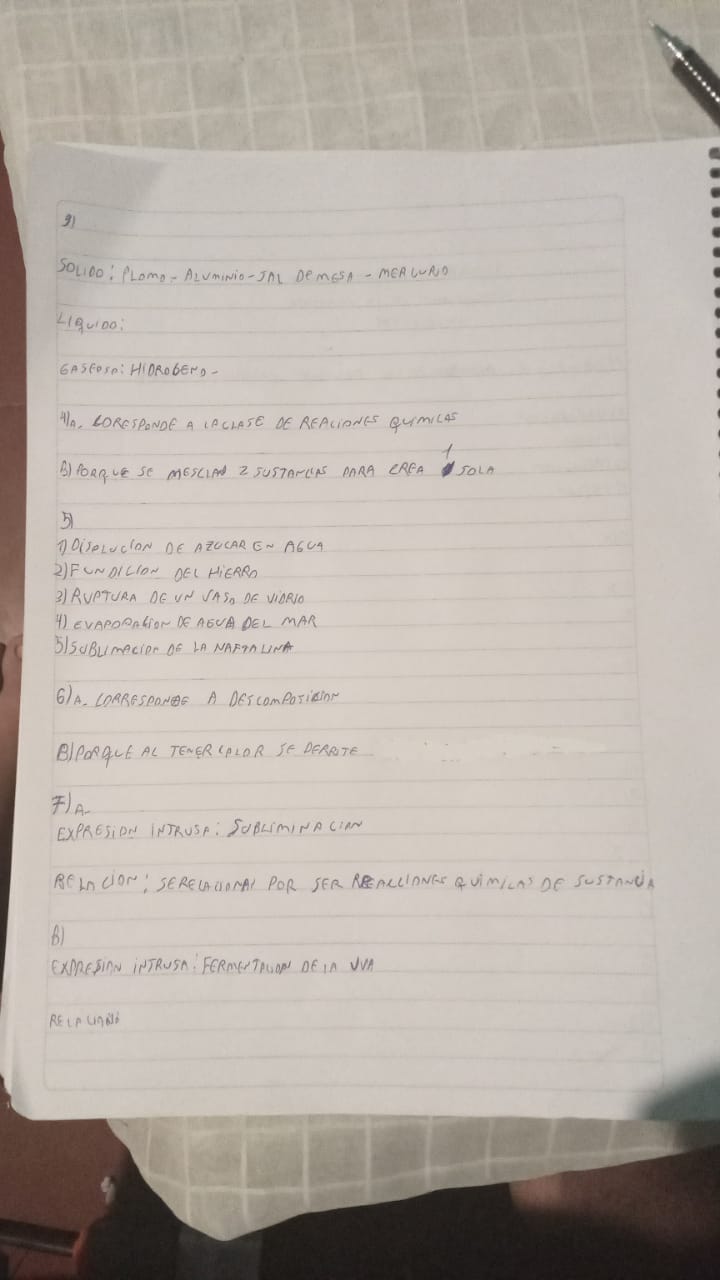 9)
SOLIDO: PLOMO - ALUMINIO - SAL DE MESA - MERCURIO
LIQUIDO:
GASEOSO: HIDROGENO -
4)A. CORESPONDE A LA CLASE DE REACIONES QUIMICAS
B) PORQUE SE MESCLAN 2 SUSTANCIAS PARA CREA 1 SOLA
5)
1) DISOLUCION DE AZUCAR EN AGUA
2) FUNDICION DEL HIERRO
3) RUPTURA DE UN VASO DE VIDRIO
4) EVAPORACION DE AGUA DEL MAR
5) SUBLIMACION DE LA NAFTALINA
6) A. CORRESPONDE A DESCOMPOSICION
B) PORQUE AL TENER CALOR SE DERRITE
7) A-
EXPRESION INTRUSA: SUBLIMINACION
RELACION: SE RELACIONAN POR SER REACCIONES QUIMICAS DE SUSTANCIA
B)
EXPRESION INTRUSA: FERMENTACION DE LA UVA